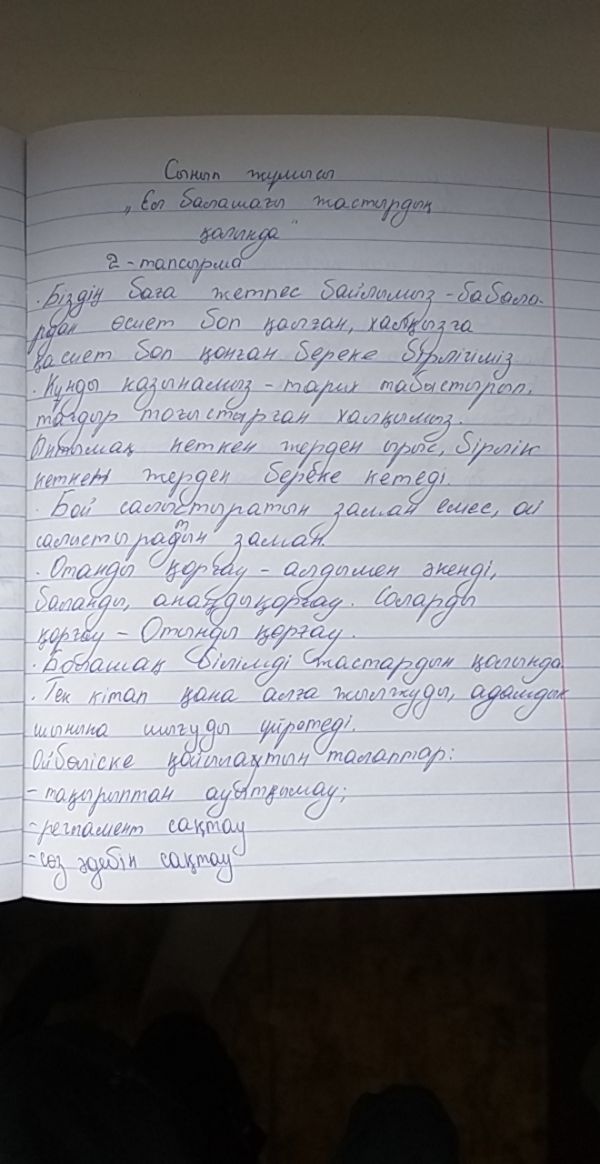 Сынып жұмысы
„Ел балашағы жастырдың
қалында"
2-тапсырма
. Біздің баға жетпес байлымыз - бабала-
рдан өсиет боп қалған, халқызға
қасиет боп қонған береке бірлігіміз
. Құнды казынамыз - тарих табыстырып,
тағдыр тоғыстырған халқымыз.
Ынтымақ кеткен жерден ырыс, бірлік
кеткен жерден береке кетеді.
. Бой салыстыратын заман емес, ой
салыстыратын заман.
. Отанды қорғау - алдымен әкенді,
баланды, ананды қорғау. Соларды
қорғау - Отынды қорғау.
. Болашақ білімді жастардың қолында.
. Тек кітап қана алға жылжуды, адамдық
шынына шығуды үйретеді.
Ойбөліске қойылахтын талаптар:
- тақырыптан ауытқымау;
- регламент сақтау
- сөз әдебін сақтау